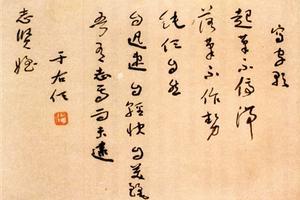 寫字歌
起筆不停滯
落筆不作勢
純任自然
自迅速自輕快自美麗
吾有志焉而未逮
于右任
志賢姪